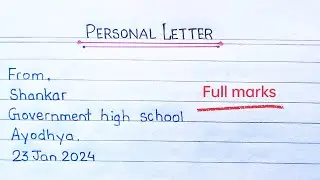 PERSONAL LETTER
From,
Shankar
Full marks
Government high school
Ayodhya.
23 Jan 2024